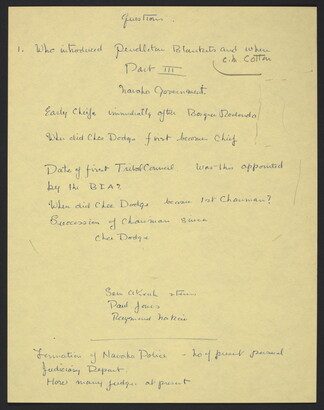 Questions.
1. Who introduced Pendleton Blankets and when
C.N. Cotton
Part III
Navaho Government.
Early Chiefs immediately after Bosque Redondo
When did Chee Dodge first become Chief
Date of first Tribal Council was this appointed
by the B.I.A?
When did Chee Dodge become 1st Chairman?
Succession of Chairman since
Chee Dodge
Sam Akeah
Paul Jones
Raymond Nakai
Formation of Navaho Police - no of present personnel
Judiciary Depart
How many judges at present